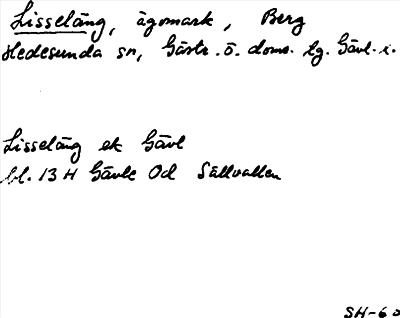 Lisseläng, ägomark, Berg
Hedesunda sn, Gästr. ö. doms. lg. Gävl. i.
Lisseläng ek Gävl
bl. 13 H Gävle Od Sällvallen
SH-60